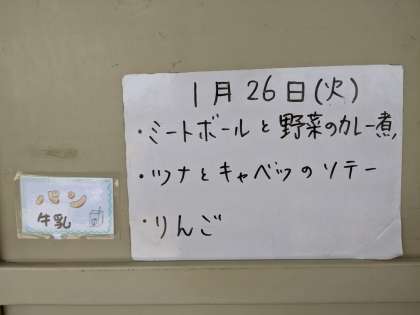 1月26日(火)
・ミートボールと野菜のカレー煮
・ツナとキャベツのソテー
・りんご
パン
牛乳